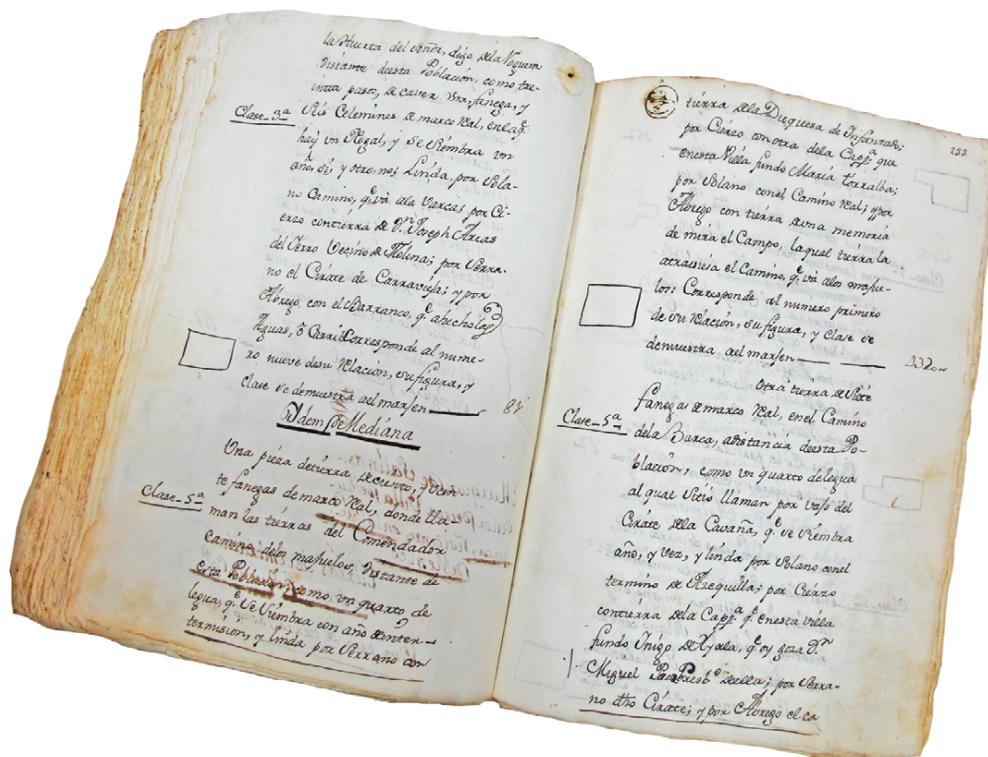 la Huerta del Señor, digo dela Noguera
distante deesta Poblacion, como tre-
inta pasos, de caver una fanega, y
Clase_3ª
Seis Celemines de marco Real, enla q.
hay un Nogal, y se Siembra un
año, si, y otro, no; Linda, por Sola-
no Camino, q.e vá ala Varca; por Ci-
erzo contierra de D.n Joseph Arcas
del Ferro Vecino de Molina; por Serra-
no el Cirate de Carraviejas; y por
Abrego, con el Barranco, q.e
Aguas, ó Corresponde al nume-
ro nueve desu Relacion, su figura, y
Clase se demuestra al marjen
Ydem de Mediana
Una pieza detierra deciento, y vein
te fanegas de marco Real, donde lla-
Clase_5ª
man las tierras del Comendador
camino delos majuelos, distante de
esta Poblacion, como un quarto de
legua, q.e se Siembra con año deinter-
termision, y linda por Serrano con
tierra dela Duquesa de Infantado;
por Cierzo con otra dela Capp.ª que
enesta Villa fundo Maria Torralba;
por Solano conel Camino Real; y por
Abrego con tierra de una memoria
de mira el Campo, la qual tierra la
atraviesa el Camino, q.e vá alos majue-
los: Corresponde al numero primero
de su Relacion, su figura, y Clase se
demuestra al marjen
otra tierra de Siete
fanegas de marco Real, enel Camino
Clase_5ª
dela Barca, adistancia deesta Po-
blacion, como un quarto delegua
al qual Sitio llaman por vajo del
Cirate dela Cavaña, q.e se Siembra
año, y vez, y linda por Solano conel
termino de Aragoncillo; por Cierzo
contierra dela Capp.ª q.e enesta Villa
fundo Inigo de Ayala, q.e oy goza D.n
Miguel Presb.o deella; por Serra-
no dho Cirate; y por Abrego el ca